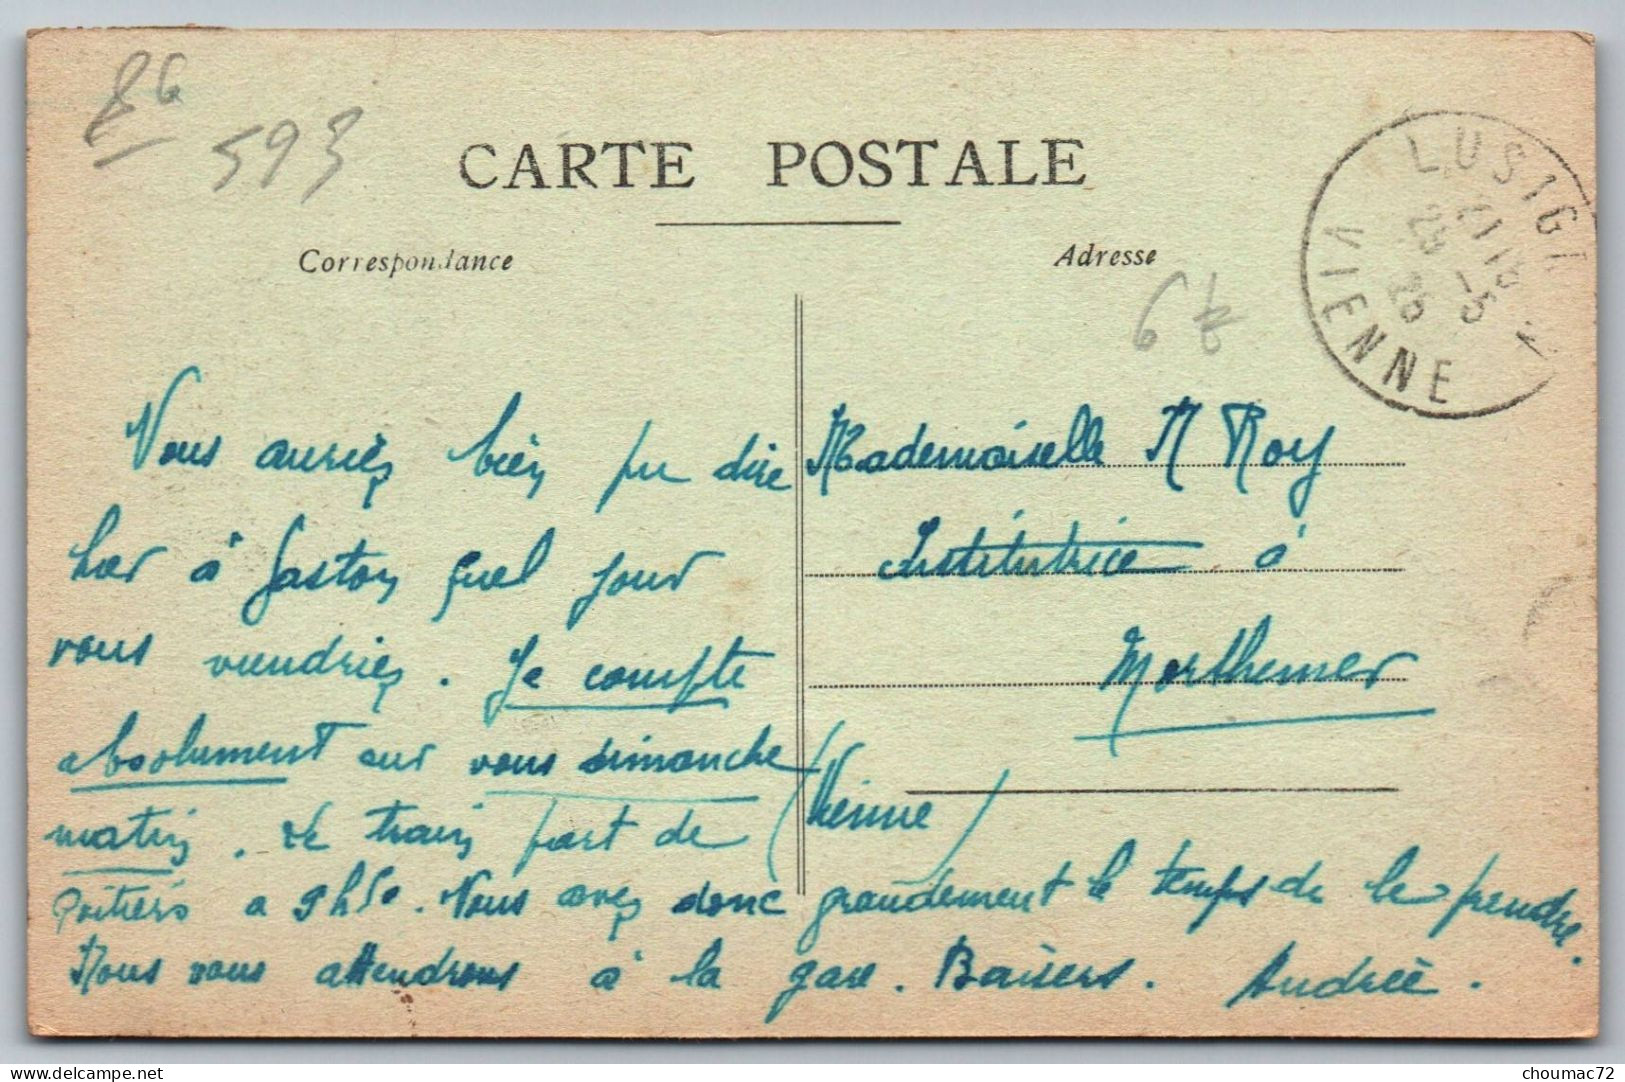 86
593
CARTE POSTALE
Correspondance
Adresse
6
LUSIGN
VIENNE
23 -5
26
Vous auriez bien pu dire
hier à Gaston quel jour
vous viendriez. Je compte
absolument sur vous dimanche
matin. Le train part de
Poitiers a 9h50. Vous avez donc grandement le temps de le prendre.
Nous vous attendrons à la gare. Baisers. Andrée.
Mademoiselle M Roy
Institutrice à
Morthemer
(Vienne)
choumac72